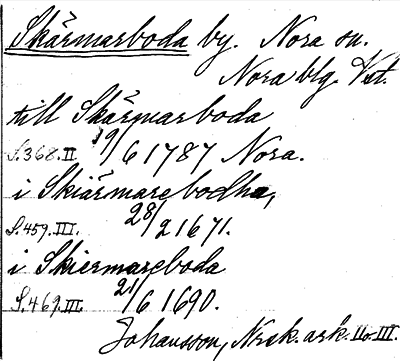 Skärmarboda by. Nora sn.
Nora blg. Vst.
till Skärmarboda
S.368.II. 19/6 1787 Nora.
i Skiärmarebodha,
S.459.III. 28/2 1671.
i Skiermareboda
S.469.III. 21/6 1690.
Johansson, Norak. ark. II o. III.